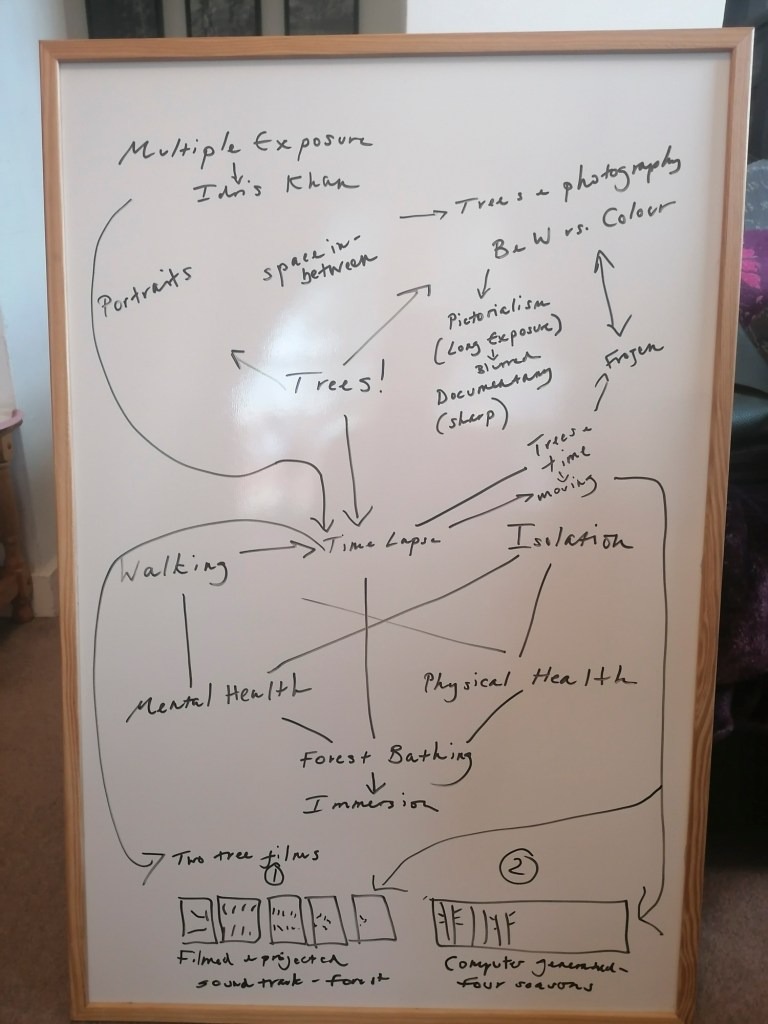 Multiple Exposure
Idris Khan
Trees + photography
B&W vs. Colour
Portraits
space in-
between
Pictorialism
(Long Exposure)
Blurred
Documentary
(sharp)
Frozen
Trees!
Trees +
time
moving
Time Lapse
Isolation
Walking
Mental Health
Physical Health
Forest Bathing
Immersion
Two tree films
1
2
Filmed + projected
sound track - forest
Computer generated -
four seasons